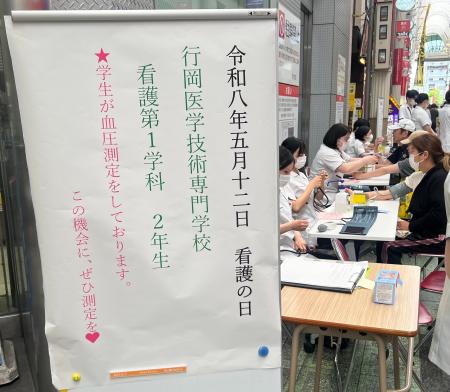 令和八年五月十二日　看護の日
行岡医学技術専門学校
看護第1学科　2年生
★学生が血圧測定をしております。
この機会に、ぜひ測定を♥